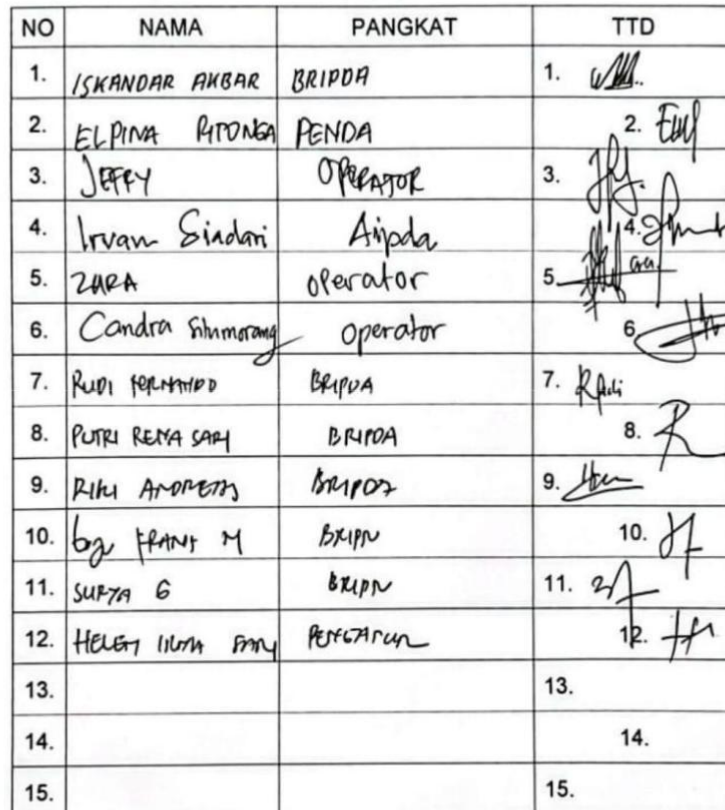 NO NAMA PANGKAT TTD
1. ISKANDAR AKBAR BRIPDA 1.
2. ELPINA RITONGA PENDA 2.
3. JEFRY OPERATOR 3.
4. Irvan Siadari Aipda 4.
5. ZURA operator 5.
6. Candra Situmorang operator 6.
7. RUDI FERNANDO BRIPDA 7.
8. PUTRI RENA SARI BRIPDA 8.
9. RIKI ANDREAS BRIPDA 9.
10. FRANS M 10.
11. SURYA G 11.
12. SARI PENGATUR 12.
13. 13.
14. 14.
15. 15.